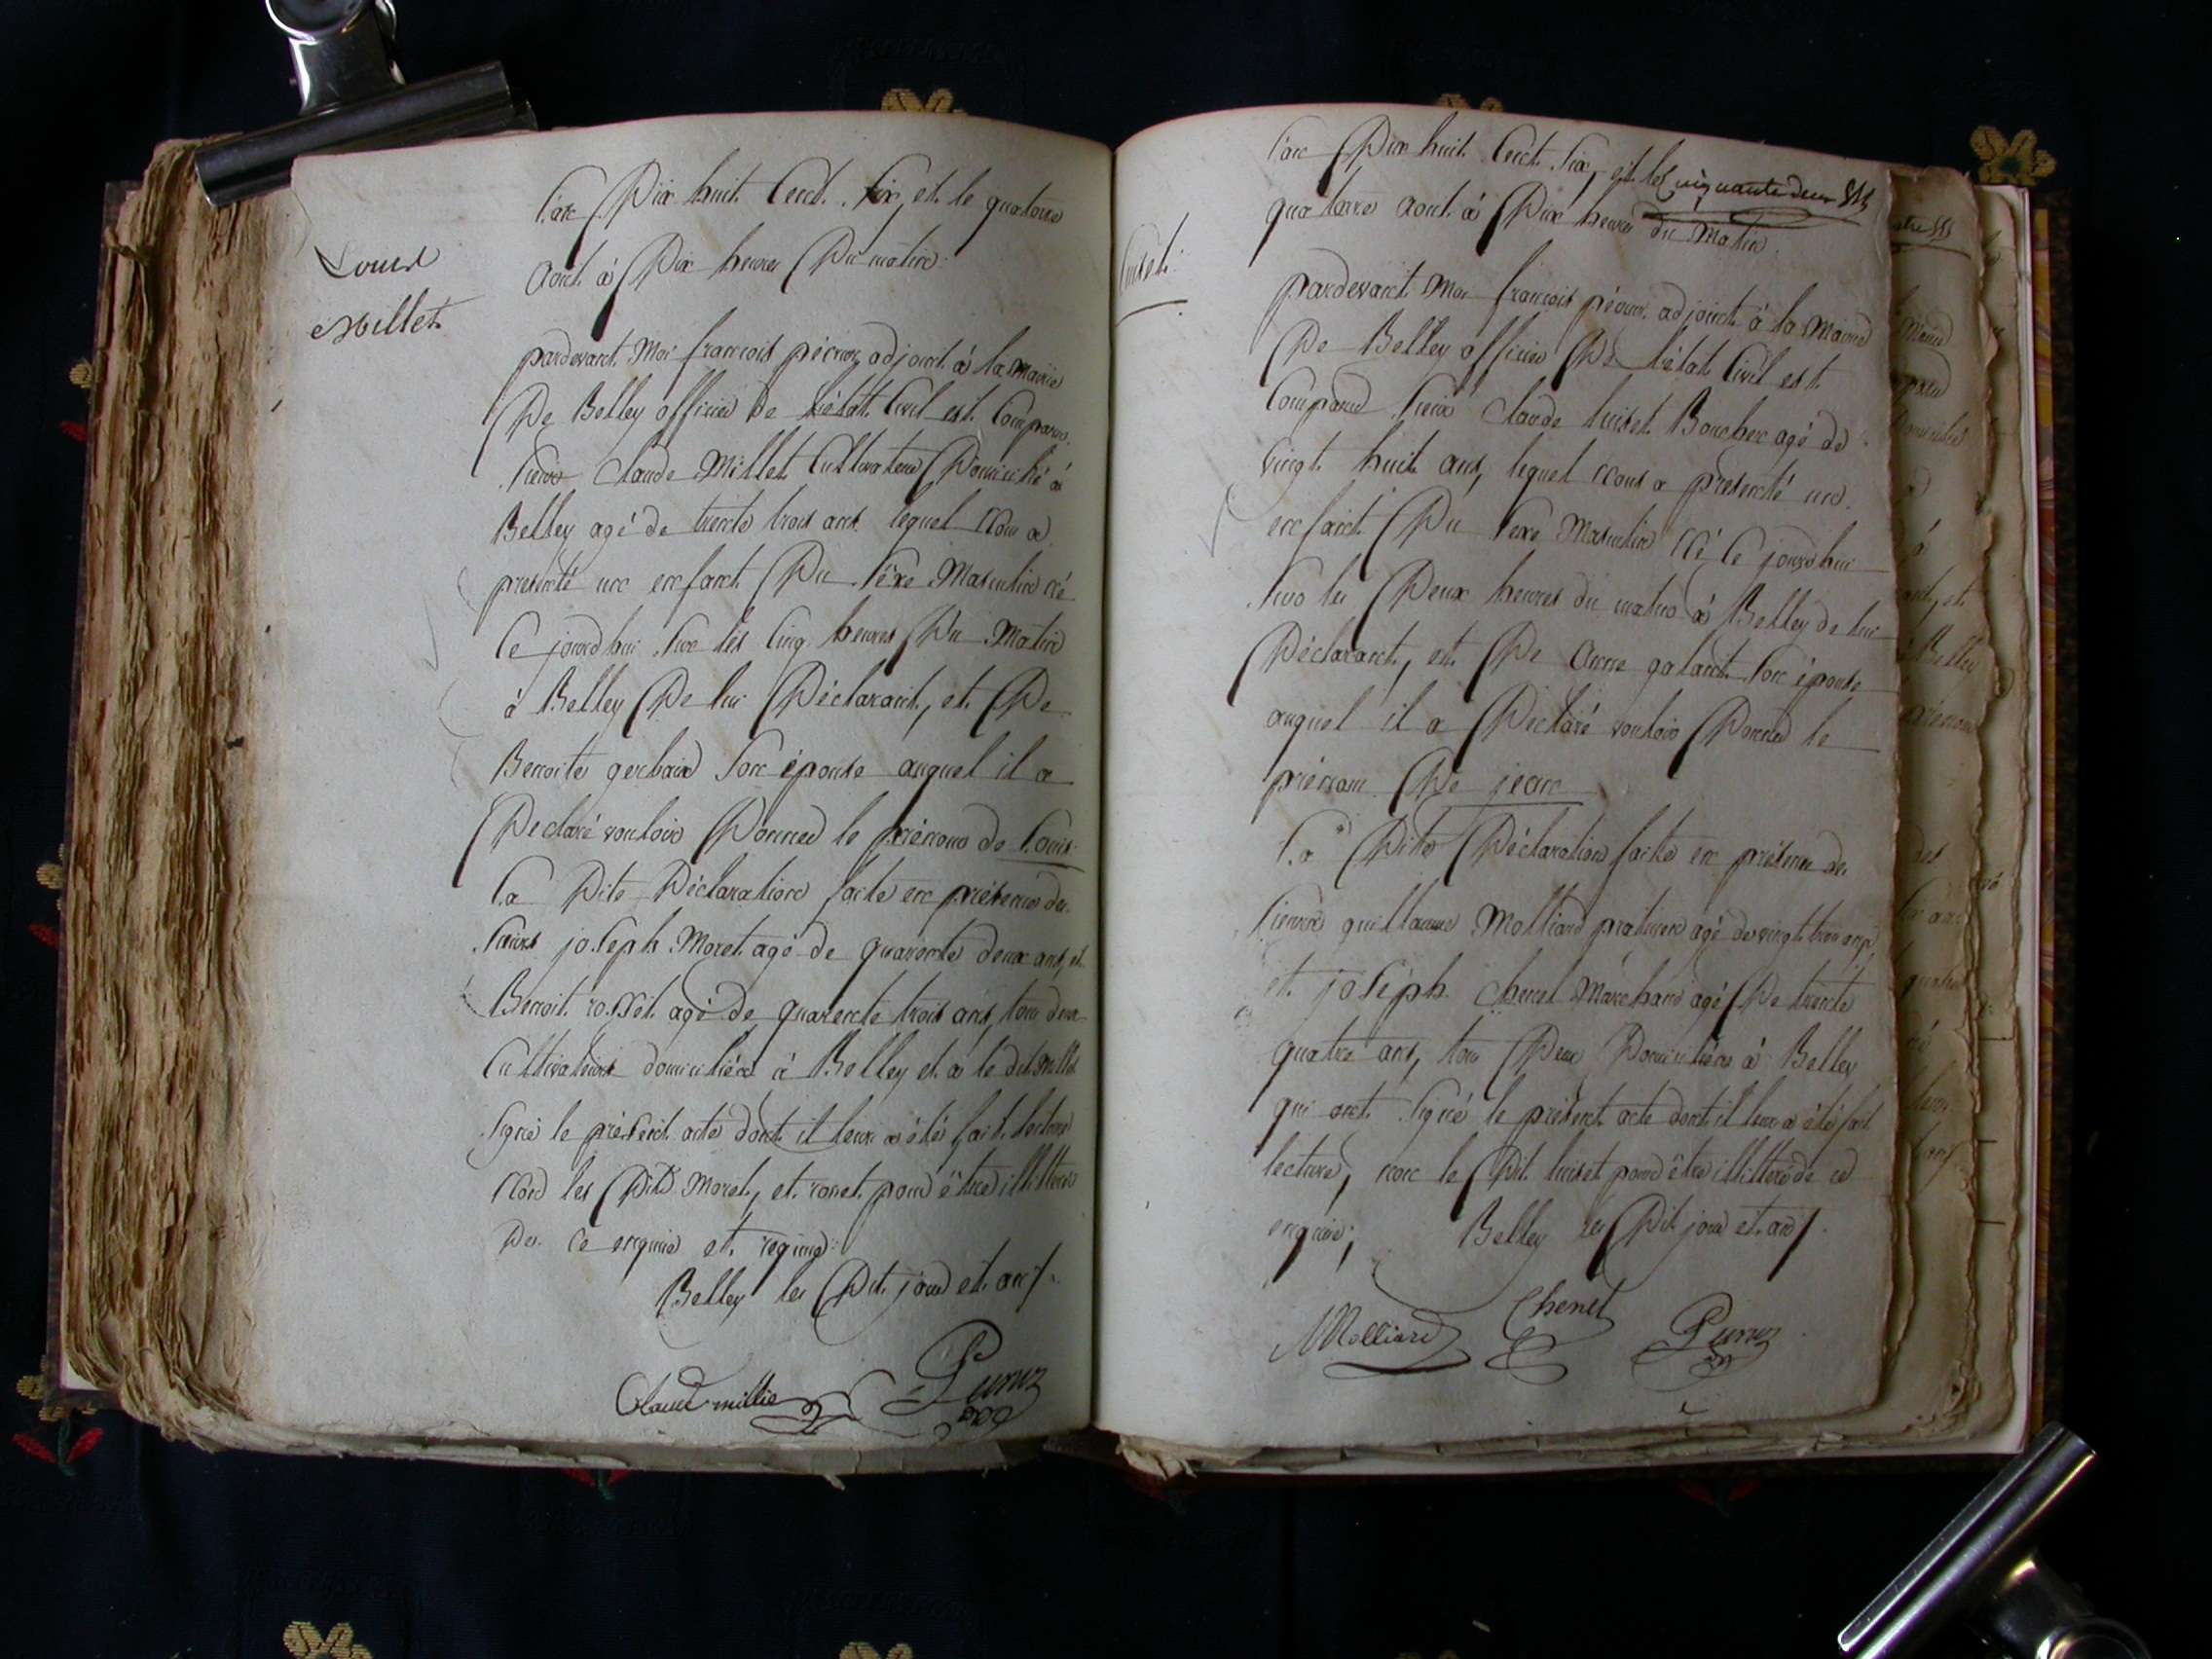 Louis
Millet
L'an Dix huit Cent Six, et le quatorze
Aout à Dix heures Du matin
pardevant Moi françois péernoz adjoint à la Mairie
De Belley officier De l'état Civil est Comparu
Sieur Claude Millet Cultivateur Domicilié à
Belley agé de trente trois ans lequel Nous a
presenté un enfant Du Sexe Masculin né
Ce jourd'hui Sur les Cinq heures Du Matin
à Belley De lui Déclarant, et De
Benoite gerbaix Son épouse auquel il a
Declaré vouloir Donner le prénom de Louis
La Dite Déclaration faite en présence des
Sieurs joseph Moret agé de quarante deux ans, et
Benoit rosset agé de quarente trois ans, tous deux
Cultivateurs domiciliés à Belley et a le dit Millet
Signé le présent acte dont il leur a été fait lecture
Non les Dits Moret, et rosset pour être illitterés
De ce enquis et requis
Belley les Dit jour et an
Claude millie
L'an Dix huit Cent Six, et le Cinquante deux
quatorze Aout à Dix heures du Matin
Luiset
pardevant Moi françois adjoint à la Mairie
De Belley officier De l'état Civil est
Comparu Sieur Claude luiset Boucher agé de
vingt huit ans, lequel nous a presenté un
enfant Du Sexe Masculin Né Ce jourd'hui
Sur les Deux heures du matin à Belley de lui
Déclarant, et De Anne galant Son épouse
auquel il a Declaré vouloir Donner le
prénom De jean
La Dite Déclaration faite en présence des
Sieurs guillaume Molliard praticien agé de vingt trois ans
et joseph Chenel Marchand agé De trente
quatre ans, tous Deux Domiciliés à Belley
qui ont Signé le présent acte dont il leur a été fait
lecture, non le Dit luiset pour être illitteré de ce
enquis; Belley les Dit jour et an
Molliard Chenel